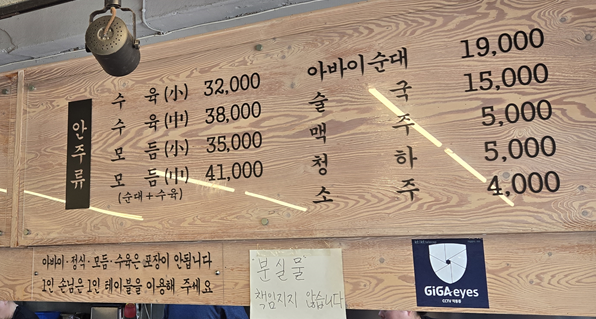 안주류
수육(小) 32,000
수육(中) 38,000
모듬(小) 35,000
모듬(中) 41,000
(순대+수육)
아바이순대 19,000
술국 15,000
맥주 5,000
청하 5,000
소주 4,000
아바이·정식·모듬·수육은 포장이 안됩니다
1인 손님은 1인 테이블을 이용해 주세요
분실물
책임지지 않습니다
GiGAeyes
CCTV 작동중